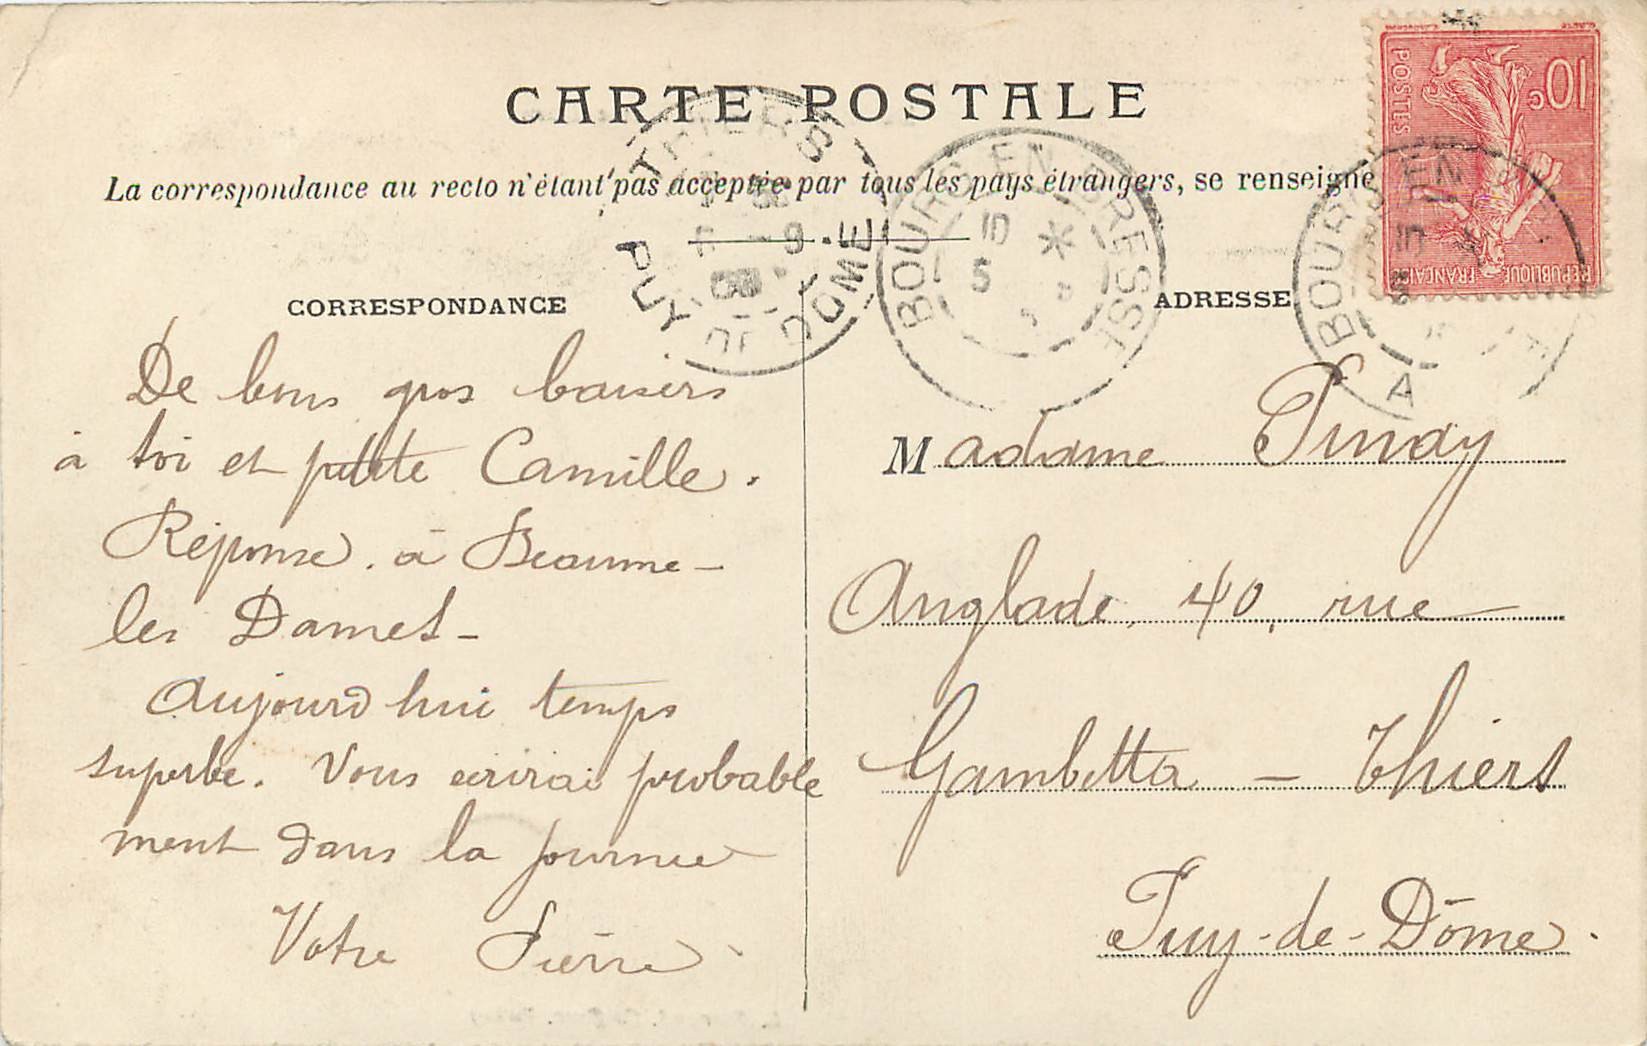 CARTE POSTALE
La correspondance au recto n'étant pas acceptée par tous les pays étrangers, se renseigne
CORRESPONDANCE
ADRESSE
De bons gros baisers
à toi et petite Camille.
Réponse. à Beaume-
les Dames -
Aujourd'hui temps
superbe. Vous écrirai probable
ment dans la journée
Votre Pierre
Madame Pinay
Anglade, 40, rue
Gambetta - Thiers
Puy-de-Dôme.
THIERS
PUY DE DOME
BOURG-EN-BRESSE
10
5
BOURG-EN
A
10c
POSTES
REPUBLIQUE FRANÇAISE